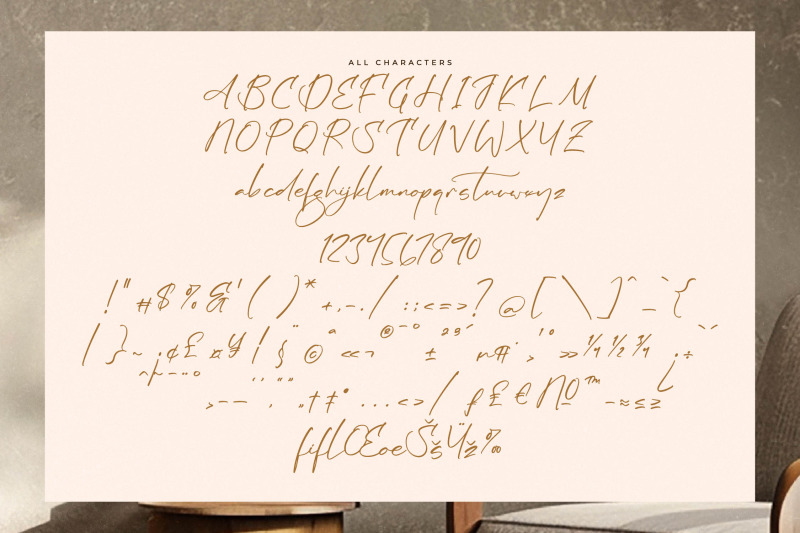 ALL CHARACTERS
ABCDEFGHIJKLM
NOPQRSTUVWXYZ
abcdefghijklmnopqrstuvwxyz
1234567890
!"#$%&'()*+,-./:;<=>?@[\]^_`{
|}~¡¢£¤¥¦§¨©ª«¬®¯°±²³´µ¶·¸¹º»¼½¾¿
›–— ‚ „†‡•…‹›⁄ƒ₤€№™−≈≤≥
fiflŒœŠšŸž‰